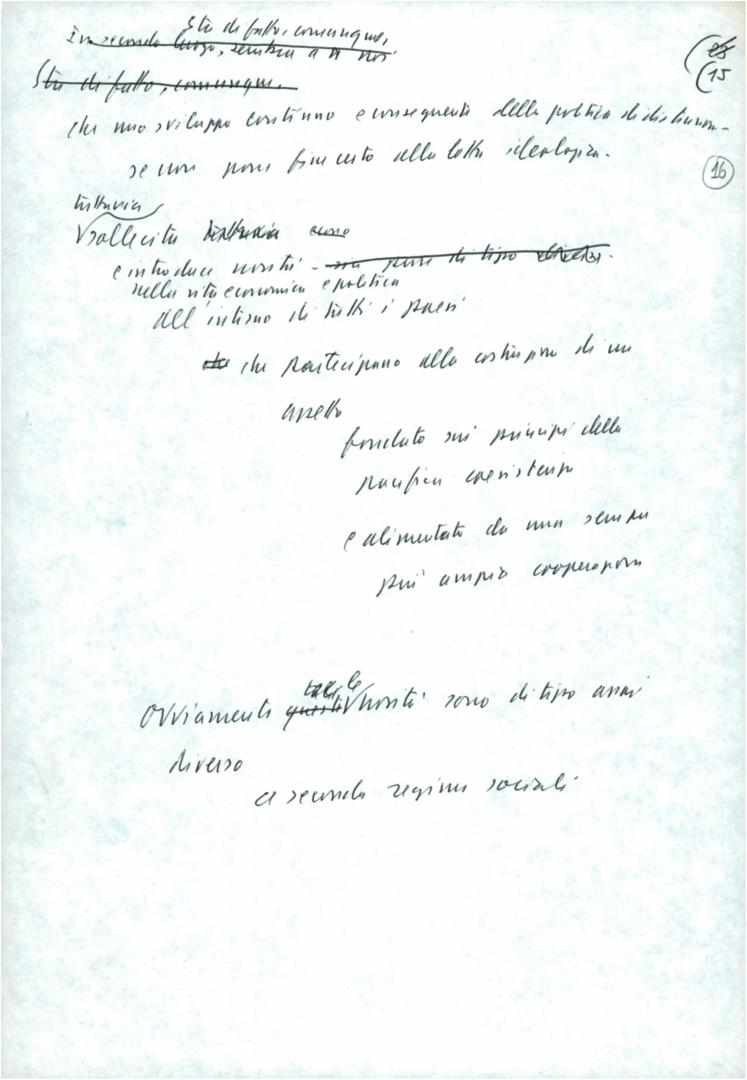 Sta di fatto, comunque,
In secondo luogo, sembra a noi
Sta di fatto, comunque.
(15
che uno sviluppo continuo e conseguente della politica di distensione
se non pone fine certo alla lotta ideologica.
16
tuttavia
sollecita tuttavia
e introduce novità - sia pure di tipo diverso.
nella vita economica e politica
all'interno di tutti i paesi
che che partecipano alla costruzione di un
assetto
fondato sui principi della
pacifica coesistenza
e alimentato da una sempre
più ampia cooperazione
tali le
Ovviamente queste novità sono di tipo assai
diverso
a seconda regimi sociali